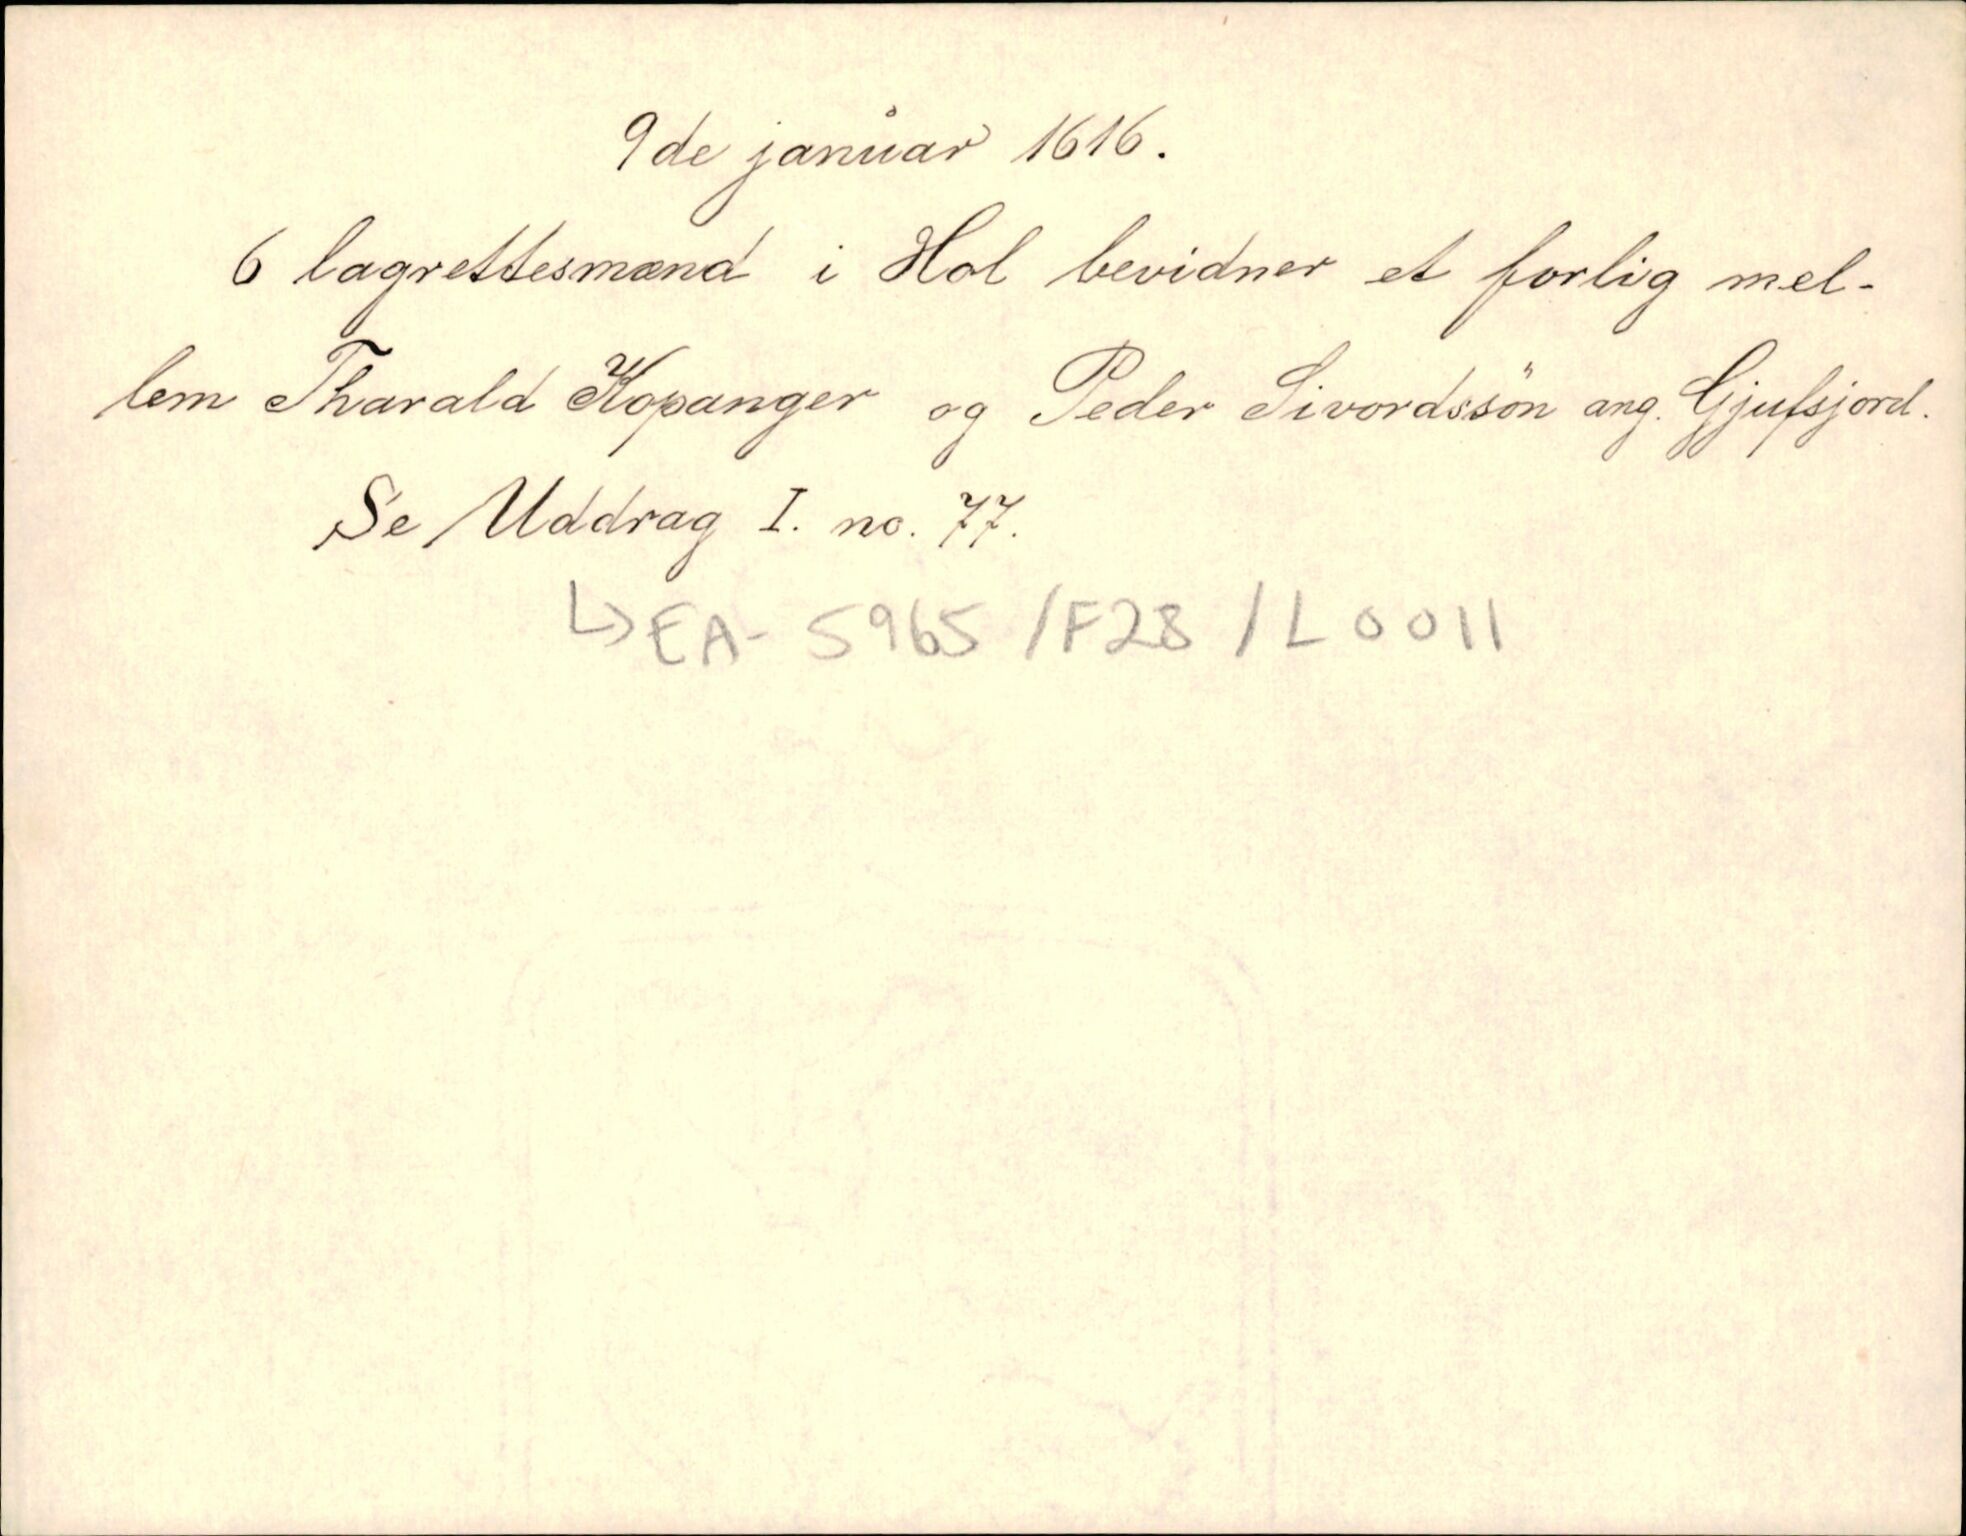 9de januar 1616.
6 lagrettesmænd i Hol bevidner et forlig mel-
lem Tharald Kopanger og Peder Sivordssön ang. Gjufsjord.
Se Uddrag I. no. 77.
↳ EA- 5965 /F28 /L0011